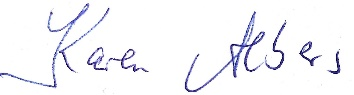 Karen Albers